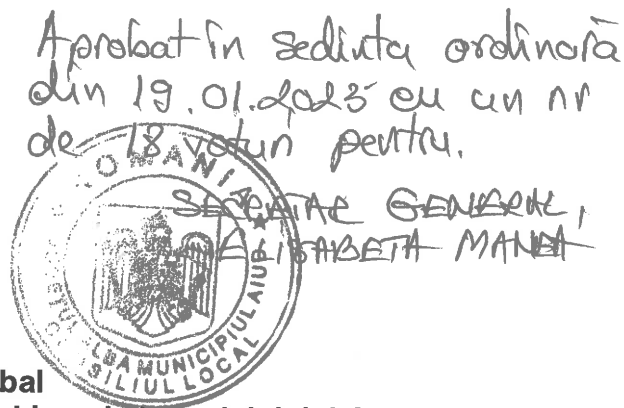 Aprobat în sedinta ordinară
din 19.01.2023 cu un nr
de 18 voturi pentru.
SECRETAR GENERAL,
ELISABETA MANEA
ROMÂNIA
ALBA MUNICIPIUL AIUD
CONSILIUL LOCAL
bal